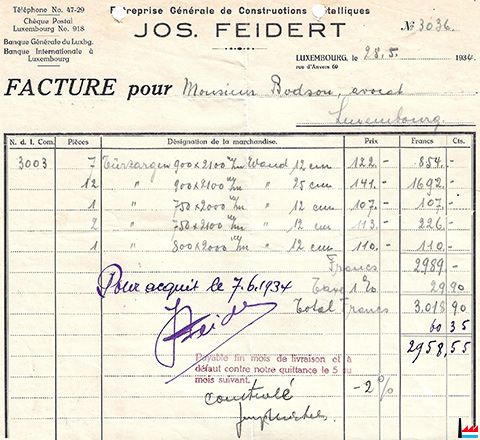 Téléphone No. 47-29
Chèque Postal
Luxembourg No. 918
Banque Générale du Luxbg.
Banque Internationale à
Luxembourg
Entreprise Générale de Constructions Métalliques
JOS. FEIDERT
№ 3036
LUXEMBOURG, le 28.5. 1934
rue d'Anvers 69
FACTURE pour Monsieur Bodson, avocat
Luxembourg
N. d. l. Com. Pièces Désignation de la marchandise. Prix Francs Cts.
3003 7 Türzargen 900x2100 m/m Wand 12 cm 122.- 854.-
12 " 900x2100 m/m " 25 cm 141.- 1692.-
1 " 750x2000 m/m " 12 cm 107.- 107.-
2 " 750x2100 m/m " 12 cm 113.- 226.-
1 " 800x2000 m/m " 12 cm 110.- 110.-
Francs 2989.-
Taxe 1% 29 90
Total Francs 3.018 90
60 35
2958,55
Pour acquit le 7.6.1934
Feidert
Payable fin mois de livraison et à
défaut contre notre quittance le 5 du
mois suivant.
-2%
controlé